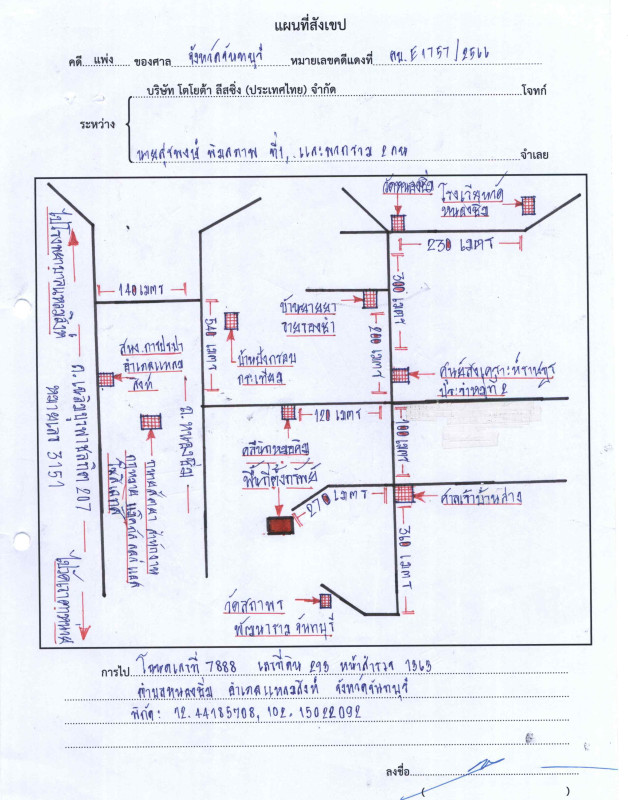 แผนที่สังเขป
คดี แพ่ง ของศาล จังหวัดจันทบุรี หมายเลขคดีแดงที่ ผบ.E1757/2566
บริษัท โตโยต้า ลีสซิ่ง (ประเทศไทย) จำกัด โจทก์
ระหว่าง
นายสุรพงษ์ พิมลภาพ ที่1, และพวกรวม 2 คน จำเลย
วัดหนองชิ่ม
โรงเรียนวัด
หนองชิ่ม
230 เมตร
300 เมตร
ไปโรงพยาบาลแหลมสิงห์
140 เมตร
540 เมตร
บ้านยายยา
200 เมตร
สนง.การประปา
อำเภอแหลม
สิงห์
น้ำหนึ่งกรอบ
กระเทียม
ศูนย์สงเคราะห์ราษฎร
ประจำหมู่ที่ 2
ถ.เฉลิมบูรพาชลทิต 207
หมายเลข 3151
ถ.หนองชิ่ม
120 เมตร
100 เมตร
พื้นที่ตั้งทรัพย์
270 เมตร
ศาลเจ้าบ้านล่าง
360 เมตร
วัดสถาพร
พัฒนาราม จันทบุรี
การไป โฉนดเลขที่ 7888 เลขที่ดิน 293 หน้าสำรวจ 1363
ตำบลหนองชิ่ม อำเภอแหลมสิงห์ จังหวัดจันทบุรี
พิกัด: 12.44185708, 102.15022092
ลงชื่อ
( )